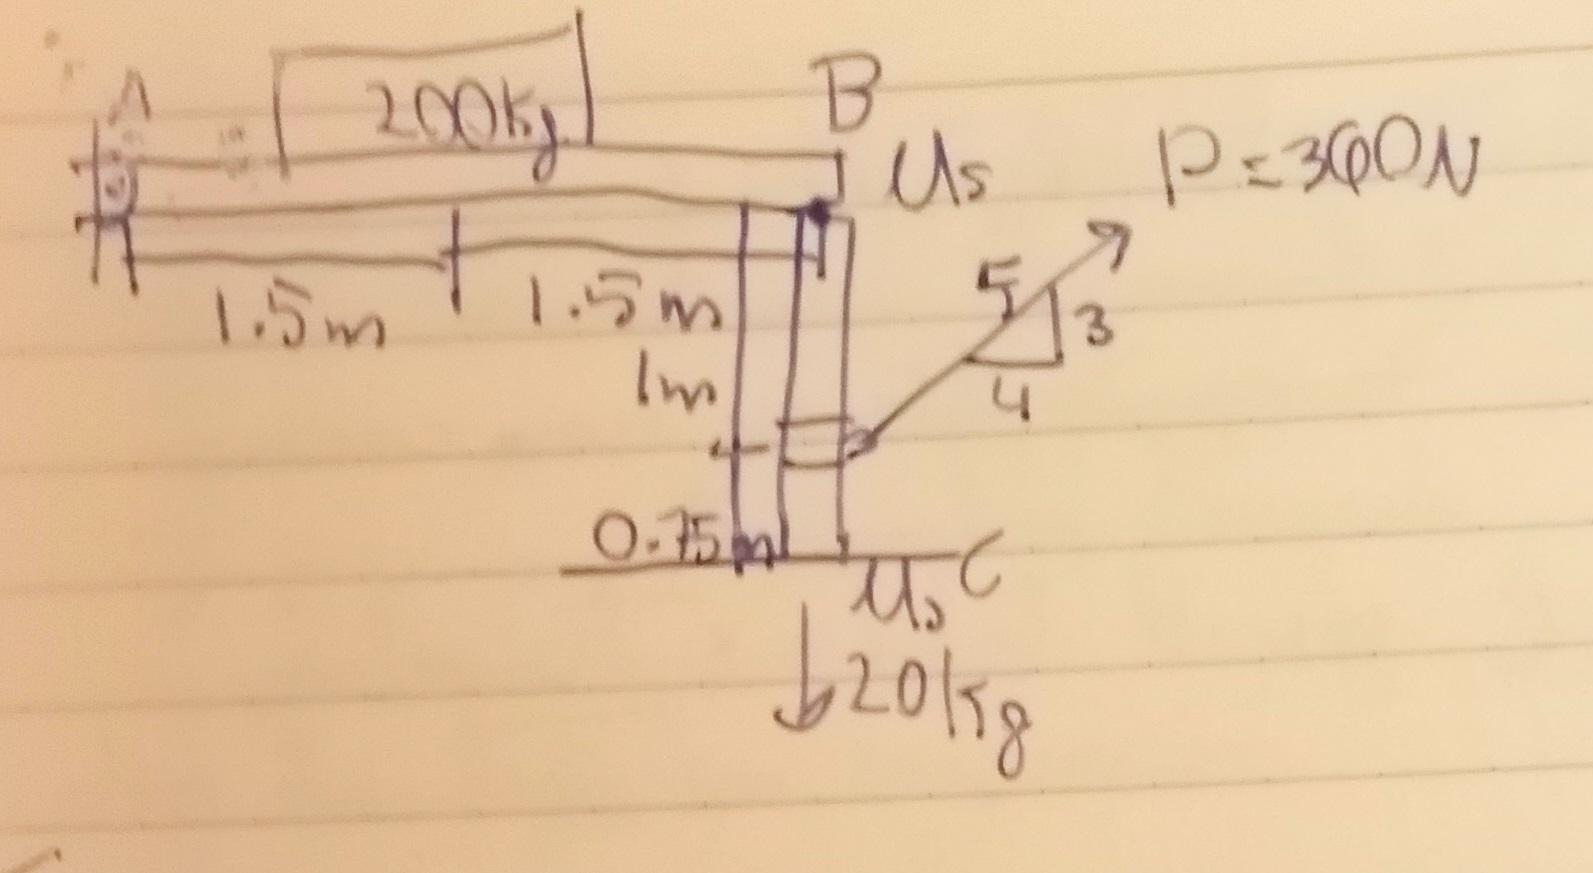 A
200kg
B
Us
P=360N
1.5m
1.5m
5
3
4
1m
0.75m
Us
C
20kg